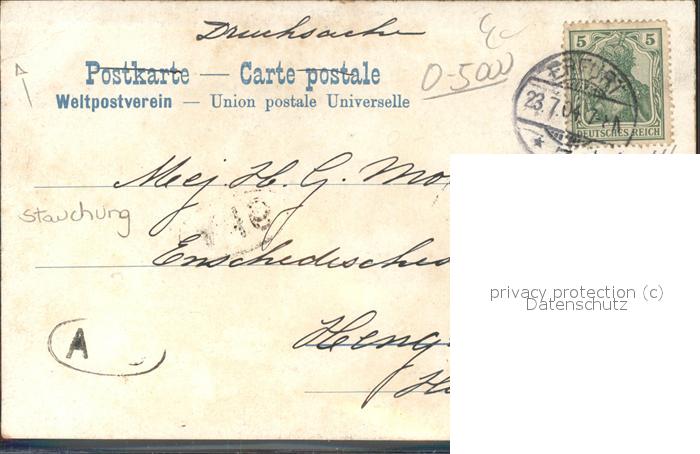 Drucksache
Postkarte — Carte postale
Weltpostverein — Union postale Universelle
0-5000
5 5
DEUTSCHES REICH
ERFURT
23.7.04.
Mej. H. G.
Stauchung
Enschedesche
A
privacy protection (c)
Datenschutz